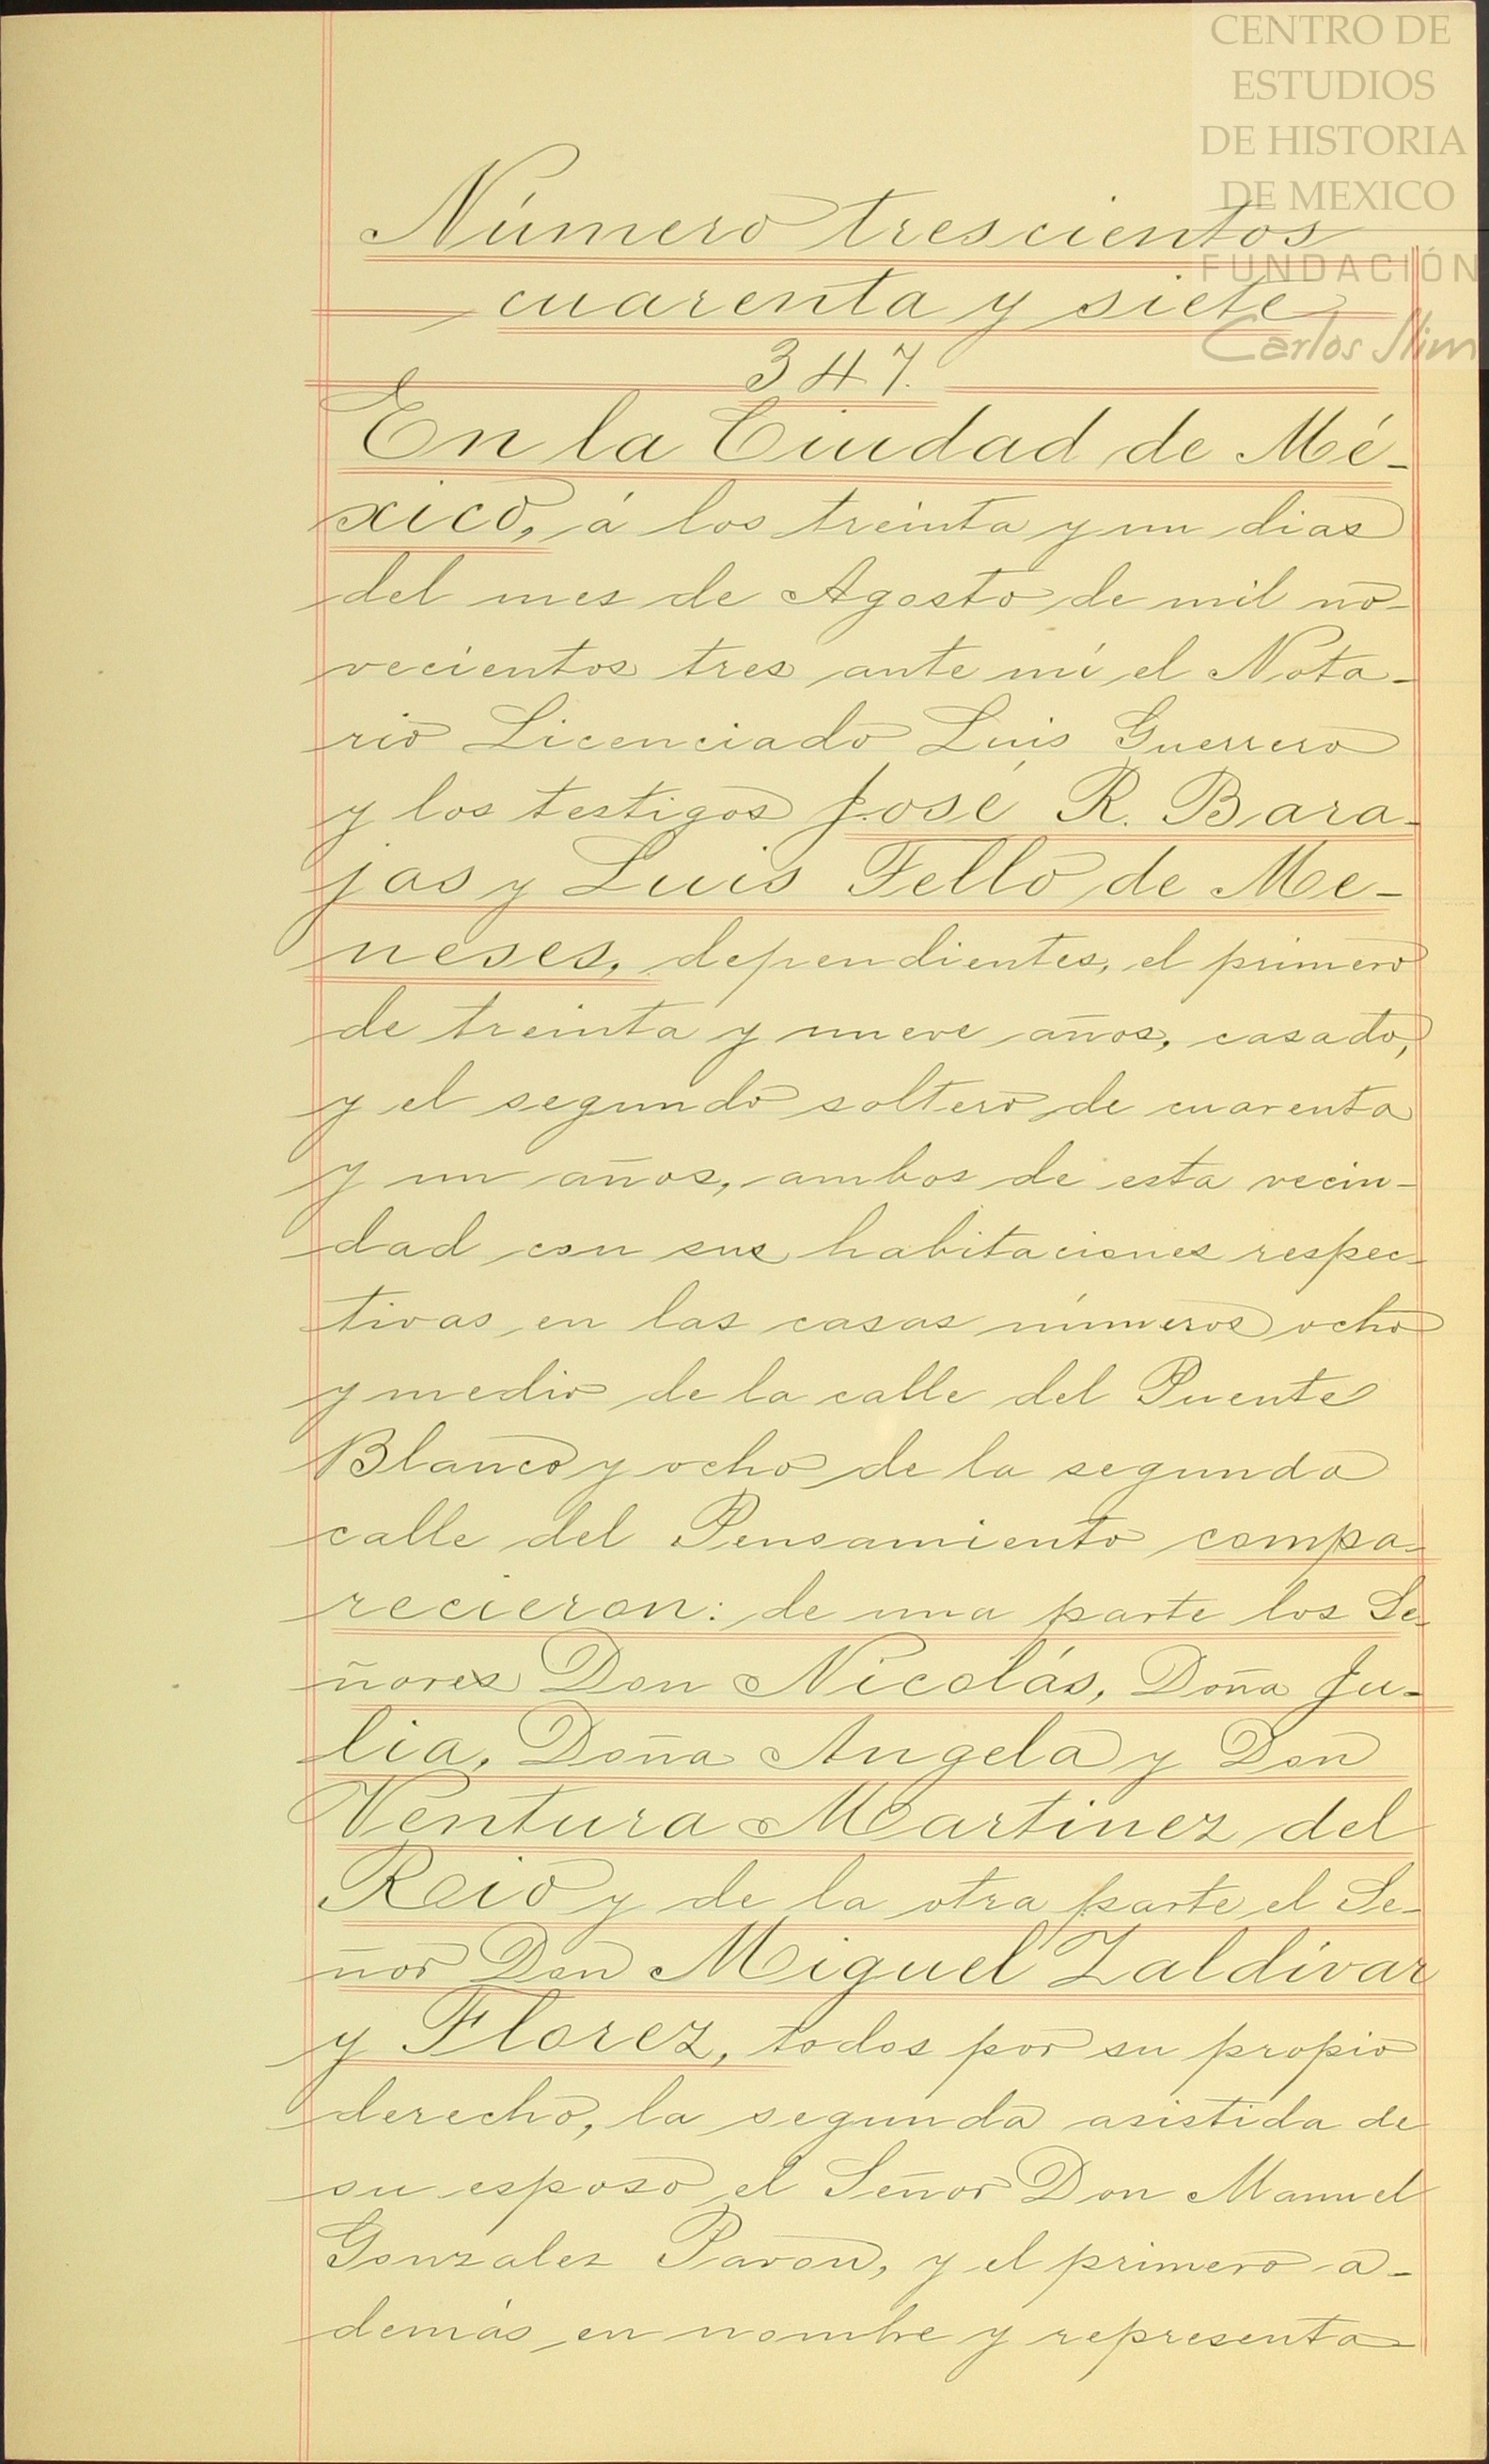 CENTRO DE
ESTUDIOS
DE HISTORIA
DE MEXICO
FUNDACIÓN
Carlos Slim
Número trescientos
cuarenta y siete
347.
En la Ciudad de Mé-
xico, á los treinta y un dias
del mes de Agosto de mil no-
vecientos tres ante mí el Nota-
rio Licenciado Luis Guerrero
y los testigos José R. Bara-
jas y Luis Fello de Me-
neses, dependientes, el primero
de treinta y nueve años, casado,
y el segundo soltero de cuarenta
y un años, ambos de esta vecin-
dad con sus habitaciones respec-
tivas en las casas números ocho
y medio de la calle del Puente
Blanco y ocho de la segunda
calle del Pensamiento compa-
recieron: de una parte los Se-
ñores Don Nicolás, Doña Ju-
lia, Doña Angela y Don
Ventura Martinez del
Rio y de la otra parte el Se-
ñor Don Miguel Zaldívar
y Florez, todos por su propio
derecho, la segunda asistida de
su esposo el Señor Don Manuel
Gonzalez Pavon, y el primero a-
demás en nombre y representa